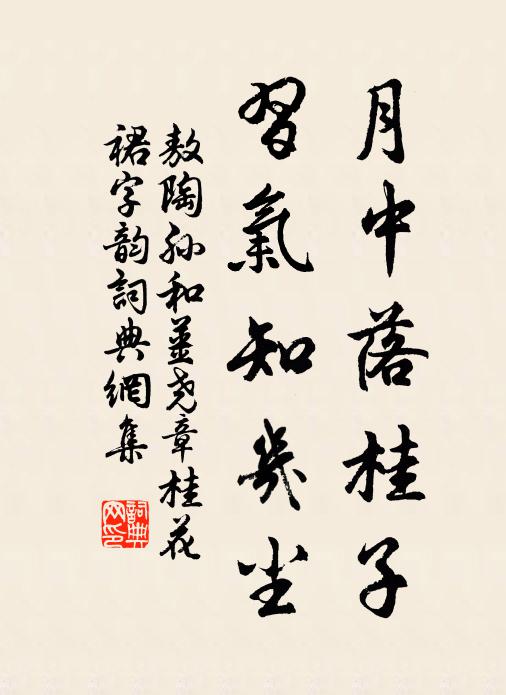 月中落桂子
習氣知幾尘
敖陶孙和薑尧章桂花
裙字韵詞典網集
詞典
网印